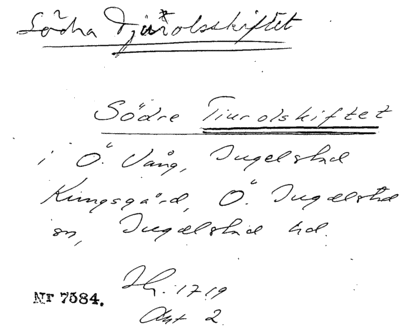 Södra Djurolsskiftet
Södre Tiurolskiftet
i Ö. Vång, Ingelstad
Kungsgård, Ö. Ingelstad
sn, Ingelstad hd.
Jb. 1719
Akt 2
Nr 7584.